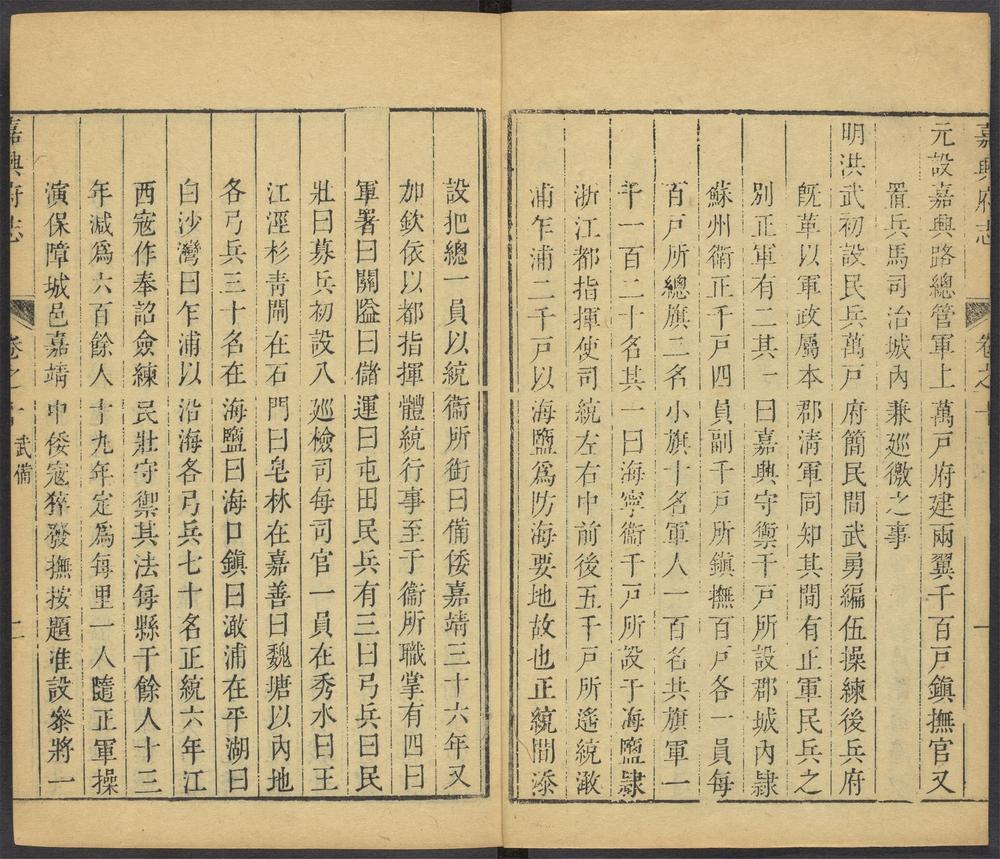 嘉興府志 卷之十 一
元設嘉興路總管軍上萬戸府建兩翼千百戸鎮撫官又
置兵馬司治城內兼廵徼之事
明洪武初設民兵萬戸府簡民間武勇編伍操練後兵府
旣革以軍政屬本郡淸軍同知其間有正軍民兵之
別正軍有二其一曰嘉興守禦千戸所設郡城內隷
蘇州衛正千戸四員副千戸所鎮撫百戸各一員每
百戸所總旗二名小旗十名軍人一百名共旗軍一
千一百二十名其一曰海寧衞千戸所設于海鹽隷
浙江都指揮使司統左右中前後五千戸所遙統澉
浦乍浦二千戸以海鹽爲防海要地故也正統間添
設把總一員以統衞所銜曰備倭嘉靖三十六年又
加欽依以都指揮體統行事至于衞所職掌有四曰
軍署曰關隘曰儲運曰屯田民兵有三曰弓兵曰民
壯曰募兵初設八廵檢司每司官一員在秀水曰王
江涇杉靑閘在石門曰皂林在嘉善曰魏塘以內地
各弓兵三十名在海鹽曰海口鎮曰澉浦在平湖曰
白沙灣曰乍浦以沿海各弓兵七十名正統六年江
西寇作奉詔僉練民壯守禦其法每縣千餘人十三
年減爲六百餘人十九年定爲每里一人隨正軍操
演保障城邑嘉靖中倭寇猝發撫按題准設叅將一
嘉興府志 卷之十 武備 二